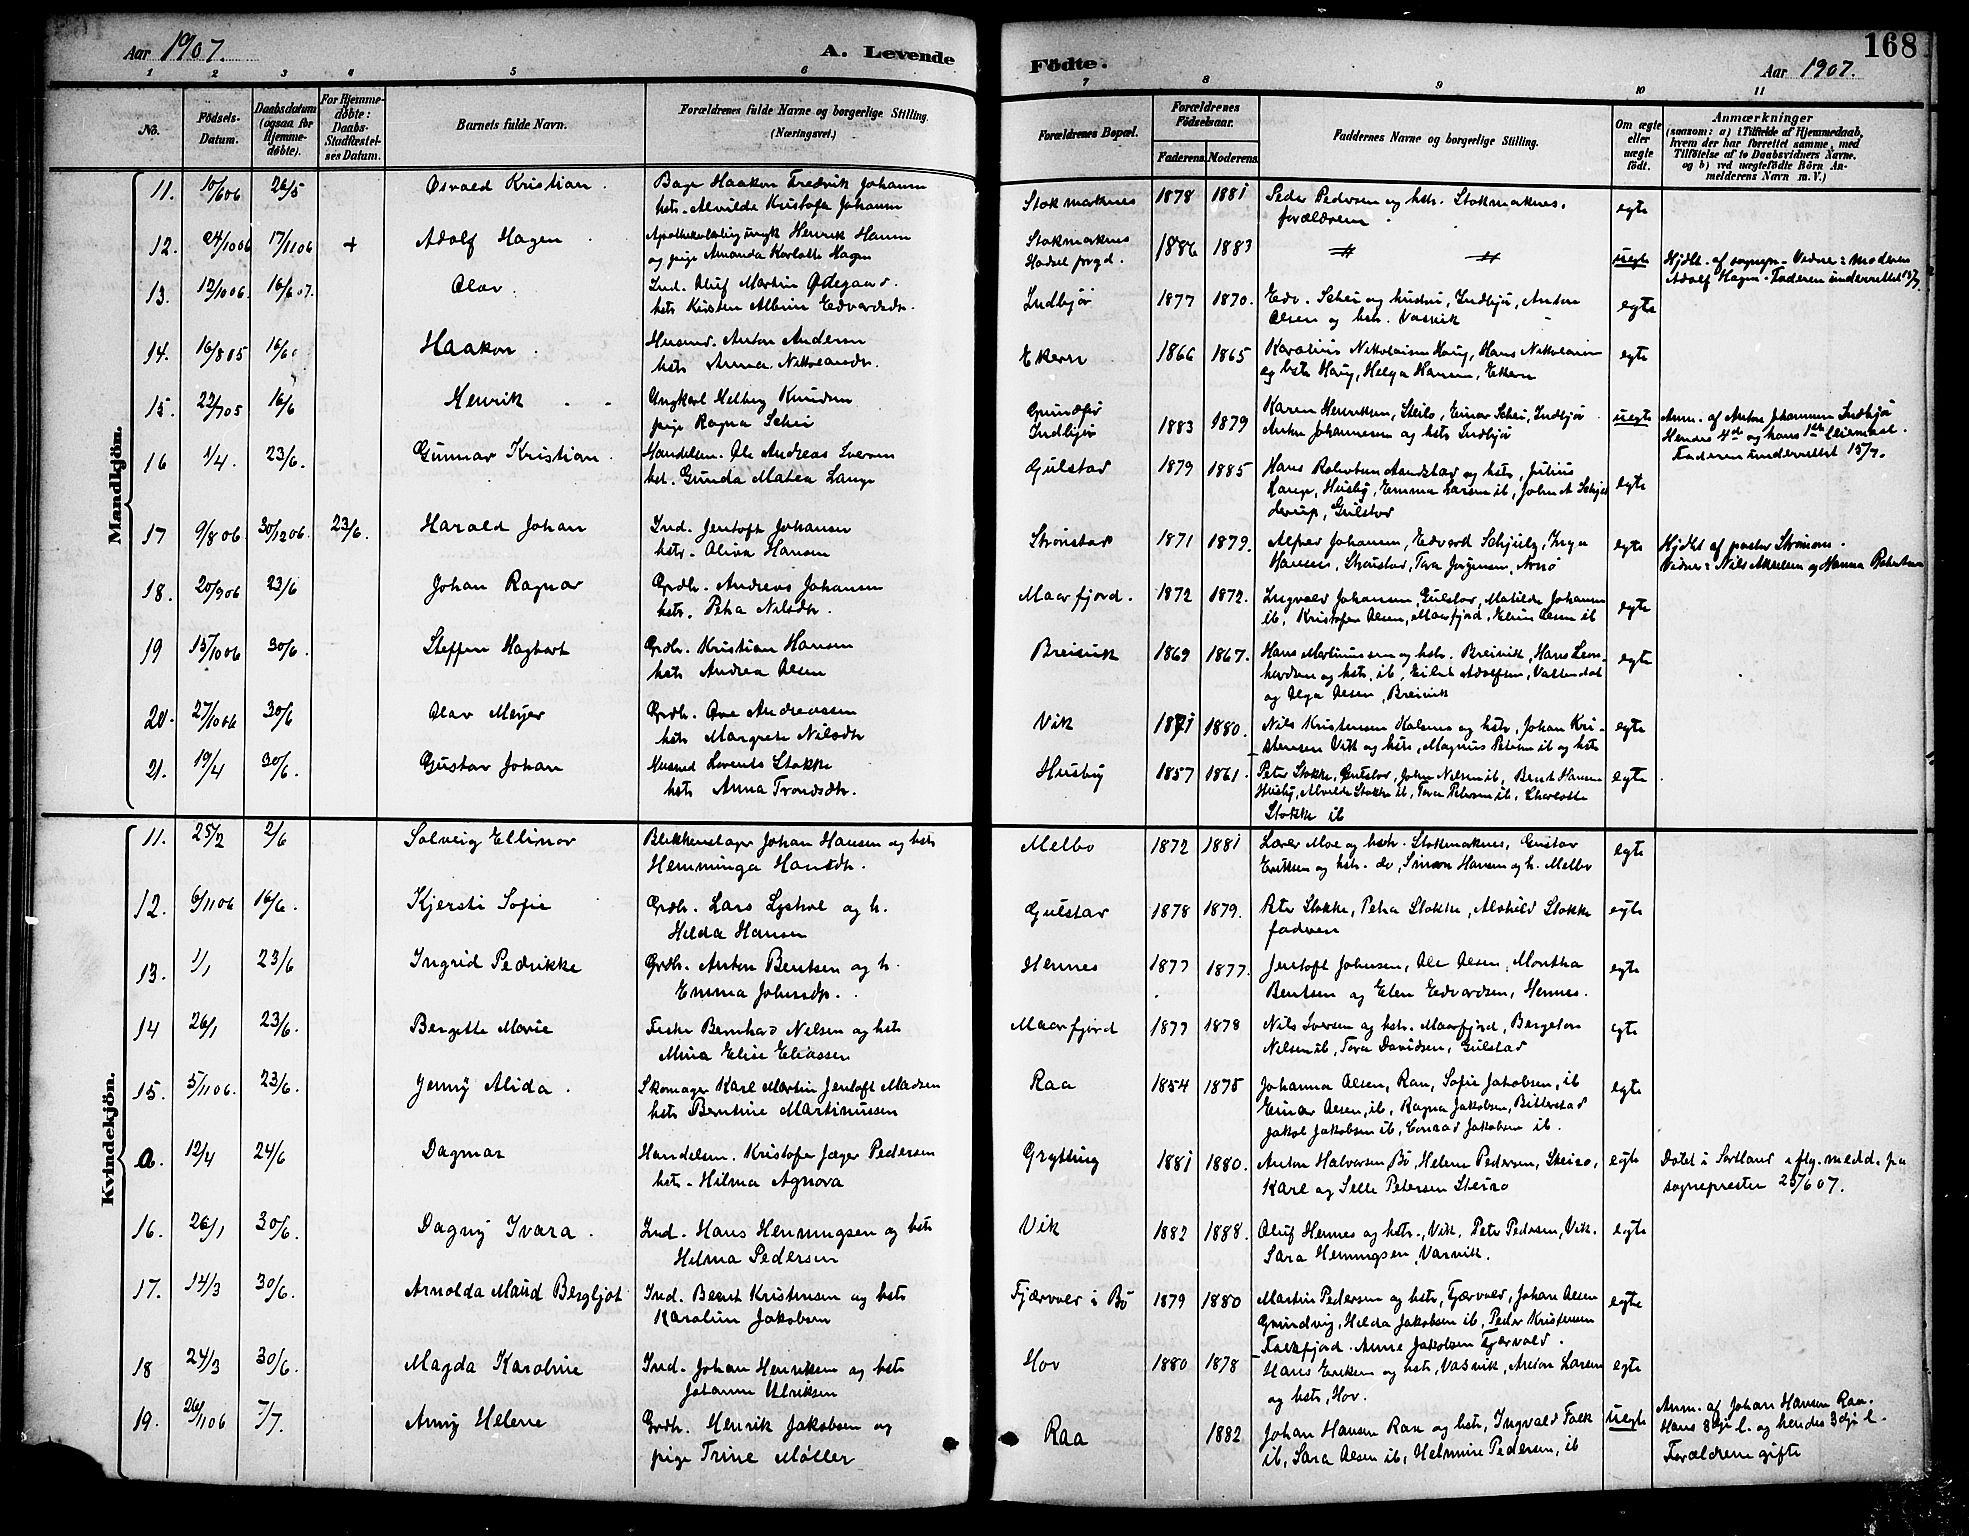 Aar 1907.
A. Levende Födte.
168
Aar 1907.
1 2 3 4 5 6 7 8 9 10 11
No.
Födsels-Datum.
Daabsdatum (ogsaa for Hjemme-døbte).
For Hjemme-døbte: Daabs-Stadfæstel-ses Datum.
Barnets fulde Navn.
Forældrenes fulde Navne og borgerlige Stilling. (Næringsvei.)
Forældrenes Bopæl.
Forældrenes Födselsaar.
Faderens. Moderens.
Faddernes Navne og borgerlige Stilling.
Om ægte eller uægte født.
Anmærkninger
(saasom: a) i Tilfælde af Hjemmedaab,
hvem der har forrettet samme, med
Tilføielse af to Daabsvidners Navne.
og b) ved uægtefødte Börn An-
melderens Navn m. V.)
Mandkjön.
11. 10/6 06 26/5 Osvald Kristian. Bager Haakon Fredrik Johansen
hstr. Alvilde Kristofa Johansen
Stokmarknes 1878 1881 Peder Pedersen og hstr. Stokmarknes,
forældrene. egte
12. 24/10 06 17/11 06 + Adolf Hagen Henrik Hansen
og pige Amanda Karlotte Hagen
Stokmarknes
Hadsel prgd. 1886 1883 uegte Hjdbt. af sognepr. Vidner: moderen
Adolf Hagen. Faderen underrettet 13/7.
13. 12/10 06 16/6 07. Olav. Ind. Oluf Martin Ødegaard.
hstr Kristen Albrine Edvardsdtr.
Indbjør 1877 1870. Edv. Schei og hustru, Indbjør, Anton
Olsen og hstr. Vasvik egte
14. 16/8 05 16/6 Haakon. Husmd. Anton Andersen
hstr Anna Nikolaisdtr.
Ekern 1866 1865 Karolius Nikolaisen Haug, Hans Nikolaisen
og hstr Haug, Helga Hansen, Ekern egte
15. 22/7 05 16/6 Henrik Ungkarl Helberg Knudsen
pige Ragna Schei
Grundfør
Indbjør 1883 1879 Karen Henriksen, Steilo, Einar Schei, Indbjør
Anton Johannesen og hstr Indbjør uegte Anm. af Anton Johannesen Indbjør
Hendes 4de og hans 1ste Leiermaal.
Faderen underrettet 15/7.
16 1/4. 23/6. Gunnar Kristian. Handelsm. Ole Andreas Iversen
hst. Gunda Matea Lange
Gulstad 1879 1885 Hans Robertsen Sandstad og hstr, Julius
Lange, Husby, Emma Larsen ib, John A Schjel
derup, Gulstad egte
17 9/8 06 30/12 06. 23/6. Harald Johan Ind. Jentoft Johansen
hstr. Olivia Hansen
Strønstad 1871 1879. Alfred Johansen, Edvard Schjelby, Inga
Hansen, Strønstad, Tora Jørgensen, Arnø egte Hjdbt af pastor Strømme.
Vidner: Nils Akselsen og Hanna Robertsen
18. 20/9 06 23/6 Johan Ragnar Grdbr. Andreas Johansen
hstr. Petra Nilsdtr.
Maarfjord. 1872 1872. Ingvald Johansen, Gulstad, Matilde Johansen
ib, Kristofer Olsen, Maarfjord, Eline Olsen ib egte
19 15/10 06 30/6. Steffen Hagbart Grdbr. Kristian Hansen
hstr Andrea Olsen
Breivik 1869 1867. Hans Martinussen og hstr. Breivik, Hans Leon-
hardsen og hstr. ib, Eilert Adolfsen, Vattendal
og Olga Olsen, Breivik egte
20. 27/10 06 30/6 Olav Meyer Grdbr. Ove Andreassen
hstr Margrete Nilsdtr
Vik 1871 1880. Nils Kristensen Kalsnes og hstr, Johan Kri-
stensen Vik og hstr, Magnus Petersen ib og hstr egte
21. 19/4 30/6. Gustav Johan Husmd Lorents Stokke
hstr Anna Trondsdtr.
Husby 1857 1861. Peter Stokke, Gulstad, John Nilsen ib, Bernt Hansen
Husby, Alvilde Stokke ib, Tora Petersen ib, Charlotte
Stokke ib egte
Kvindekjön.
11. 25/2 2/6 Solveig Ellinor Blikkenslager Johan Hansen og hstr
Hemminga Hansdtr.
Melbo 1872 1881 Lærer Moe og hstr. Stokmarknes, Gustav
Eriksen og hstr. do, Simon Hansen og h. Melbo egte
12. 6/11 06 16/6. Kjersti Sofie Grdbr. Lars Lysvol og h.
Hilda Hansen
Gulstad 1878 1879. Peter Stokke, Petra Stokke, Alvhild Stokke
fadren egte
13. 1/1 23/6 Ingrid Pedrikke Grdbr. Anton Bentsen og h.
Emma Johnsdtr.
Hennes 1877 1877. Jentoft Johnsen, Ole Olsen, Montha
Bentsen og Elen Edvardsen, Hennes. egte
14 26/1 23/6. Bergitte Marie Fisker Bernhard Nilsen og hstr
Mina Elise Eliassen
Maarfjord 1877 1878 Nils Iversen og hstr. Maarfjord, Bergeton
Nilsen ib, Tora Davidsen, Gulstad egte
15. 5/11 06. 23/6. Jenny Alida. Skomager Karl Martin Jentoft Madsen
hstr Berntine Martinussen
Raa 1854 1875 Johanna Olsen, Raa, Sofie Jakobsen, ib
Einar Olsen, ib, Ragna Jakobsen, Bitterstad
Jakob Jakobsen ib, Conrad Jakobsen ib. egte
a. 12/4 24/6 Dagmar Handelsm. Kristofer Jæger Pedersen
hstr. Hilma Agnora
Grytting 1881 1880. Anton Halvorsen Bø, Helene Pedersen, Steiro,
Karl og Selle Petersen Steiro egte Døbt i Sortland iflg. medd. fra
sognepresten 25/6 07.
16. 26/1 30/6. Dagny Ivara. Ind. Hans Henningsen og hstr
Hilma Pedersen
Vik 1882 1888. Oluf Hennes og hstr., Vik, Peter Pedersen, Vik.
Sara Henningsen, Vasvik. egte
17. 14/3 30/6. Arnolda Maud Bergljot Ind. Bernt Kristensen og hstr
Karoline Jakobsen
Fjærvoll i Bø 1879 1880 Martin Pedersen og hstr, Fjærvold, Johan Olsen
Grundvig, Hilda Jakobsen ib, Peder Kristensen
Falkfjord. Anne Jakobsen Fjærvold. egte
18 24/3 30/6. Magda Karoline Ind. Johan Henriksen og hstr
Johanne Ulriksen
Hov 1880 1878 Hans Eriksen og hstr, Vasvik, Anton Larsen
og hstr, Hov. egte
19. 26/11 06 7/7. Anny Helene Grdbr. Henrik Jakobsen og
pige Trine Møller
Raa 1882 Johan Hansen Raa og hstr, Ingvald Falk
ib, Sara Olsen ib, Helmine Pedersen, ib uegte Anm. af Johan Hansen Raa.
Hans 3dje l. og hendes 3dje l.
Forældrene gifte